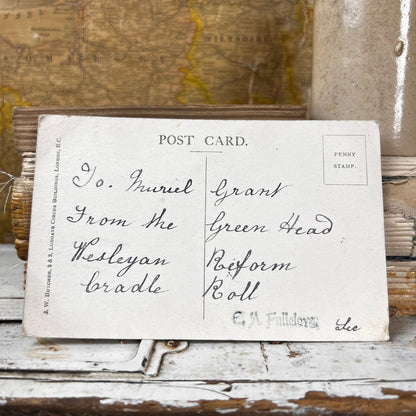 POST CARD.
PENNY
STAMP.
To. Muriel Grant
From the Green Head
Wesleyan Reform
Cradle Roll
J. W. BUTCHER, 2 & 3, LUDGATE CIRCUS BUILDINGS, LONDON, E.C.